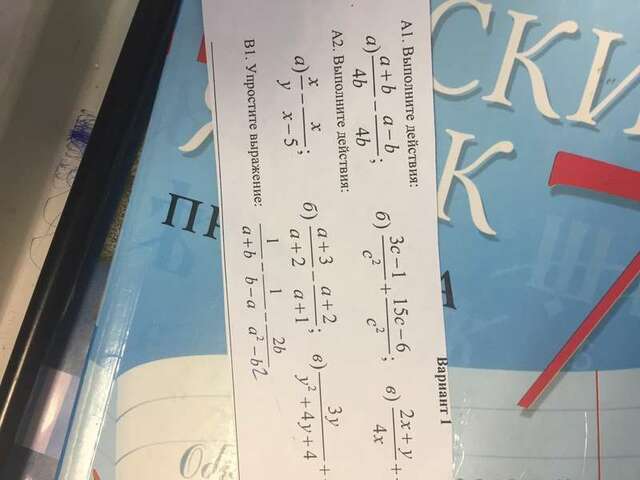 Вариант 1
А1. Выполните действия:
а) (a+b)/(4b) − (a−b)/(4b); б) (3c−1)/c² + (15c−6)/c²; в) (2x+y)/(4x) +
А2. Выполните действия:
а) x/y − x/(x−5); б) (a+3)/(a+2) − (a+2)/(a+1); в) 3y/(y²+4y+4) +
В1. Упростите выражение: 1/(a+b) − 1/(b−a) − 2b/(a²−b2)
СКИ
К